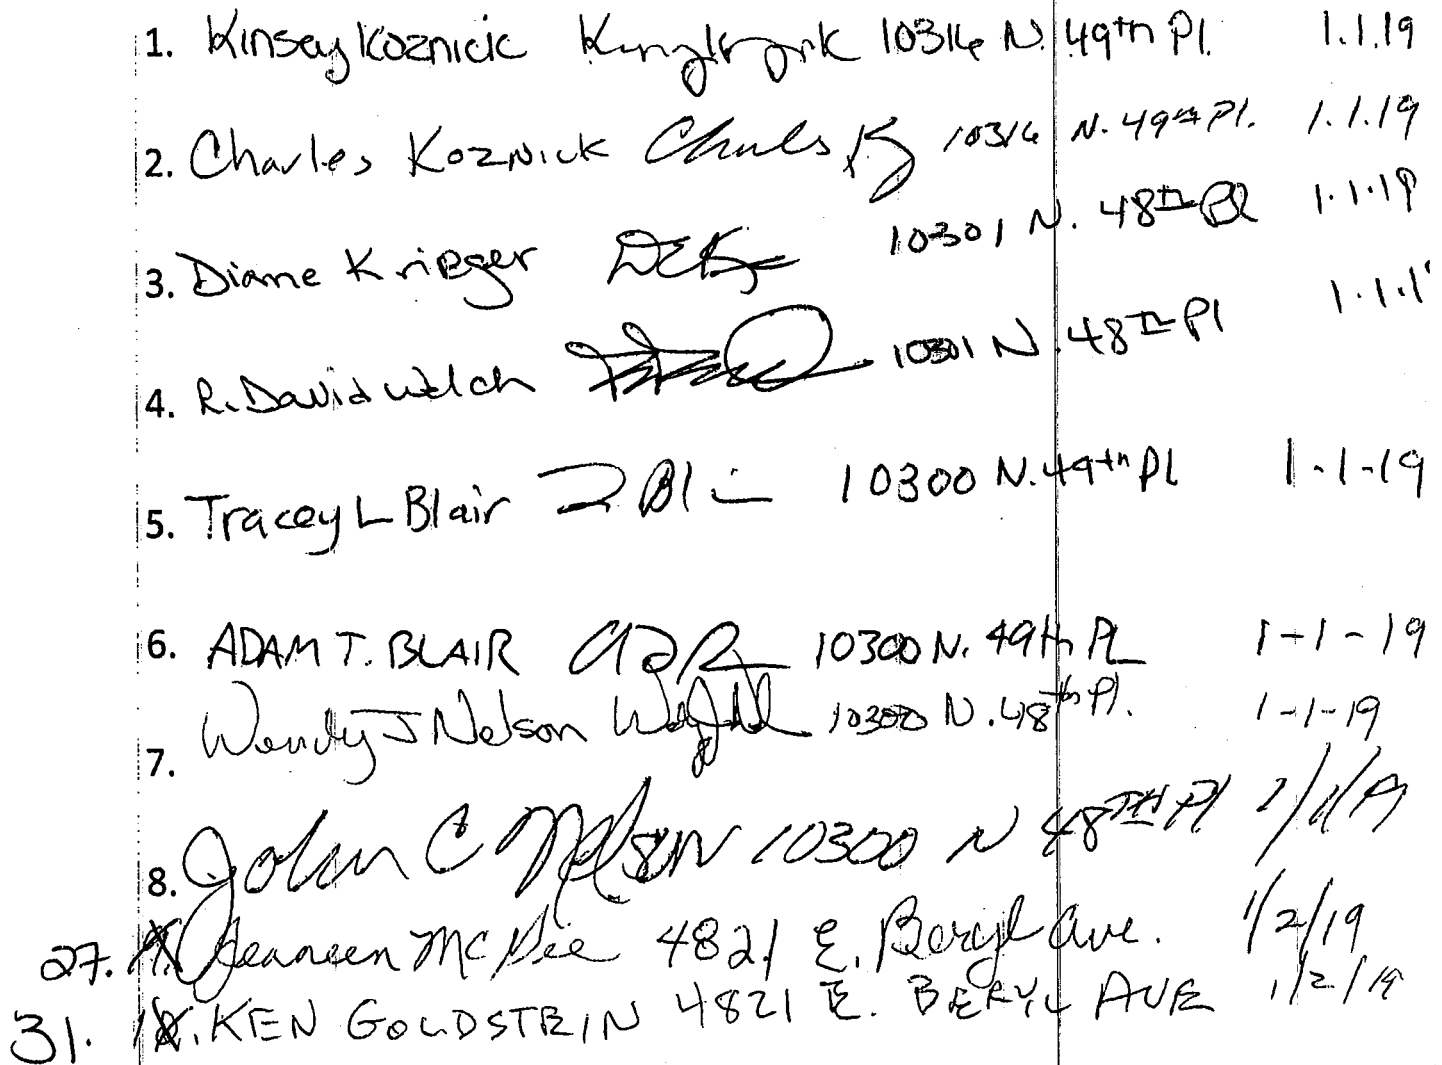 1. Kinsey Koznick 10316 N. 49th Pl. 1.1.19
2. Charles Koznick Charles K 10316 N. 49th Pl. 1.1.19
3. Diane Krieger 10301 N. 48th Pl 1.1.19
4. R. David Welch 10301 N. 48th Pl 1.1.1
5. Tracey L Blair 10300 N. 49th Pl 1-1-19
6. ADAM T. BLAIR 10300 N. 49th PL 1-1-19
7. Wendy J Nelson 10300 N. 48th Pl. 1-1-19
8. John C Nelson 10300 N 48TH Pl 1/1/19
27. Jeaneen McPhie 4821 E. Beryl Ave. 1/2/19
31. KEN GOLDSTEIN 4821 E. BERYL AVE 1/2/19